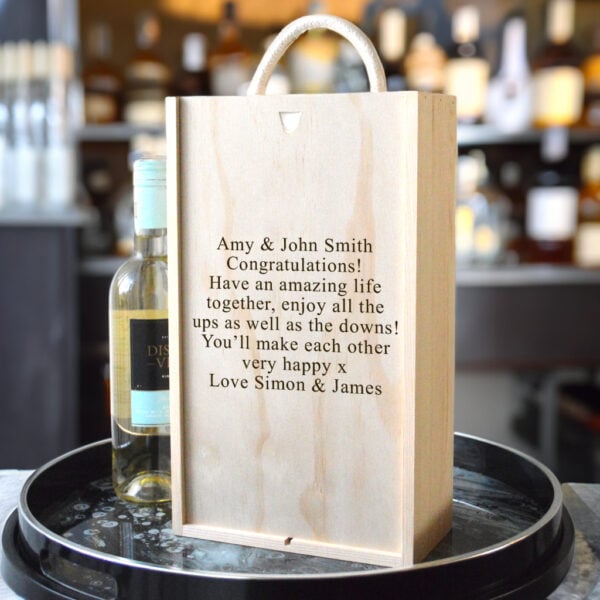 Amy & John Smith
Congratulations!
Have an amazing life
together, enjoy all the
ups as well as the downs!
You’ll make each other
very happy x
Love Simon & James
DIS